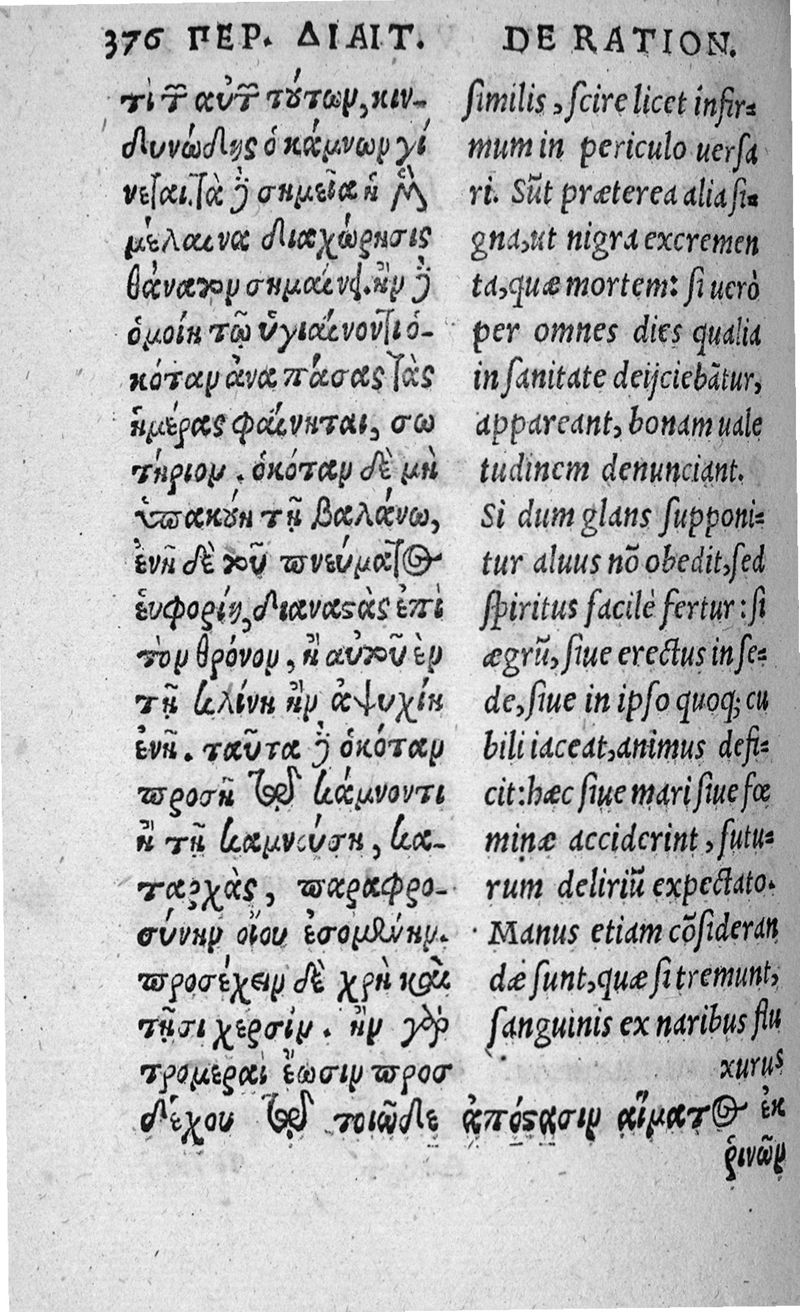 376 ΠΕΡ. ΔΙΑΙΤ.
τούτων, κιν-
δυνώδης ὁ κάμνων γί
νεται. τὰ δὲ σημεῖα ἡ μὲν
μέλαινα διαχώρησις
θάνατον σημαίνει. ἢν δὲ
ὁμοίη τῷ ὑγιαίνοντι ὁ-
κόταν ἀνα πάσας τὰς
ἡμέρας φαίνηται, σω
τήριον. ὁκόταν δὲ μὴ
ὑπακούη τῇ βαλάνω,
ἐνῇ δὲ τοῦ πνεύματος
ἐυφορίη, διαναστὰς ἐπὶ
τὸν θρόνον, ἢ αὐτοῦ ἐν
τῇ κλίνη ἢν ἀψυχίη
ἐνῇ. ταῦτα δὲ ὁκόταν
προσῇ τῷ κάμνοντι
ἢ τῇ καμνούση, κα-
ταρχὰς, παραφρο-
σύνην οἴου ἐσομένην.
προσέχειν δὲ χρὴ καὶ
τῇσι χερσίν. ἢν γὰρ
τρομεραὶ ἔωσιν προσ
δέχου τῷ τοιῷδε ἀπόστασιν αἵματος ἐκ
ῥινῶν
DE RATION.
similis, scire licet infir-
mum in periculo uersa
ri. Sũt præterea alia si-
gna, ut nigra excremen
ta, quæ mortem: si uerò
per omnes dies qualia
in sanitate deijciebãtur,
appareant, bonam uale
tudinem denunciant.
Si dum glans supponi-
tur aluus nõ obedit, sed
spiritus facilè fertur: si
ægrũ, siue erectus in se-
de, siue in ipso quoq; cu
bili iaceat, animus defi-
cit: hæc siue mari siue fœ
minæ acciderint, futu-
rum deliriũ expectato.
Manus etiam cõsideran
dæ sunt, quæ si tremunt,
sanguinis ex naribus flu
xurus